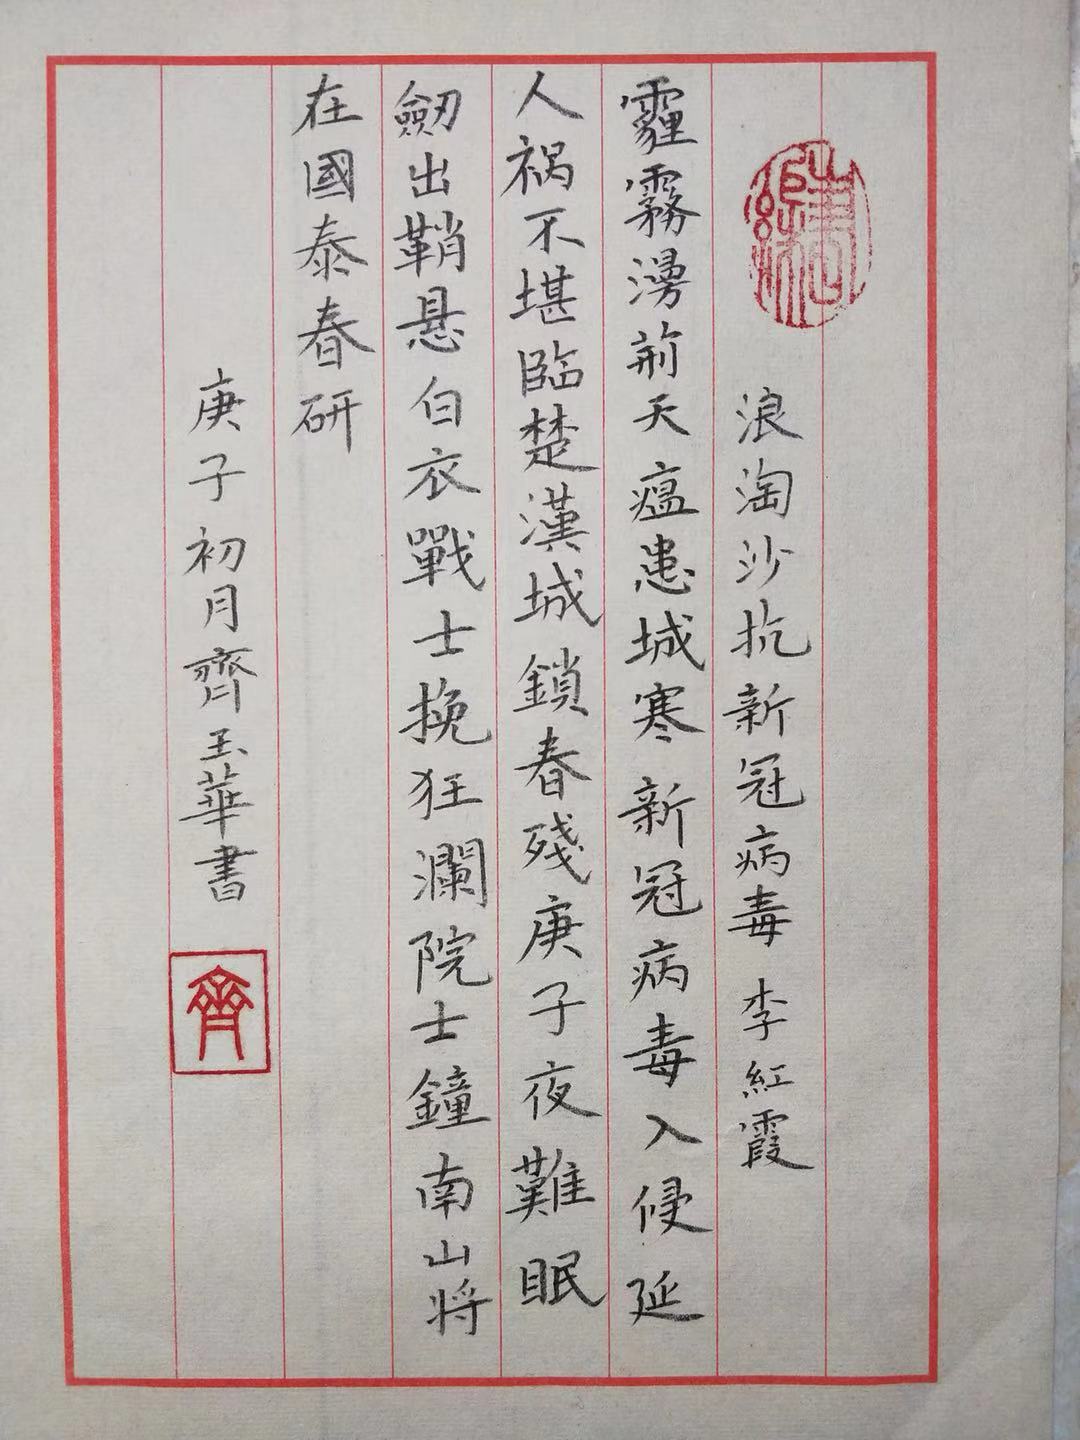 浪淘沙抗新冠病毒 李紅霞
霾霧湧前天瘟患城寒新冠病毒入侵延
人祸不堪臨楚漢城鎖春殘庚子夜難眠
劒出鞘悬白衣戰士挽狂瀾院士鐘南山将
在國泰春研
庚子初月齊玉華書
齊